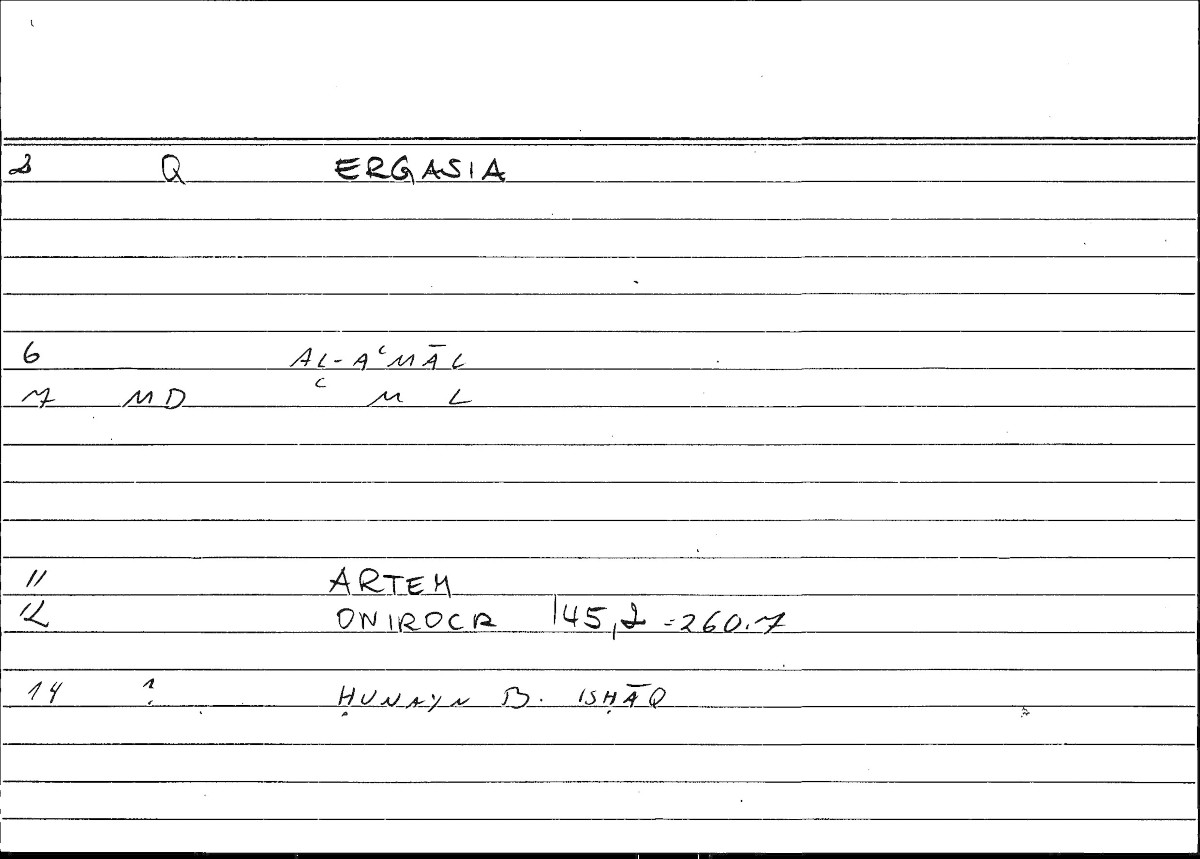 2 Q ERGASIA
6 AL-AʿMĀL
7 MD ʿ M L
11 ARTEM
12 ONIROCR 145,2 = 260.7
14 ? ḤUNAYN B. ISḤĀQ